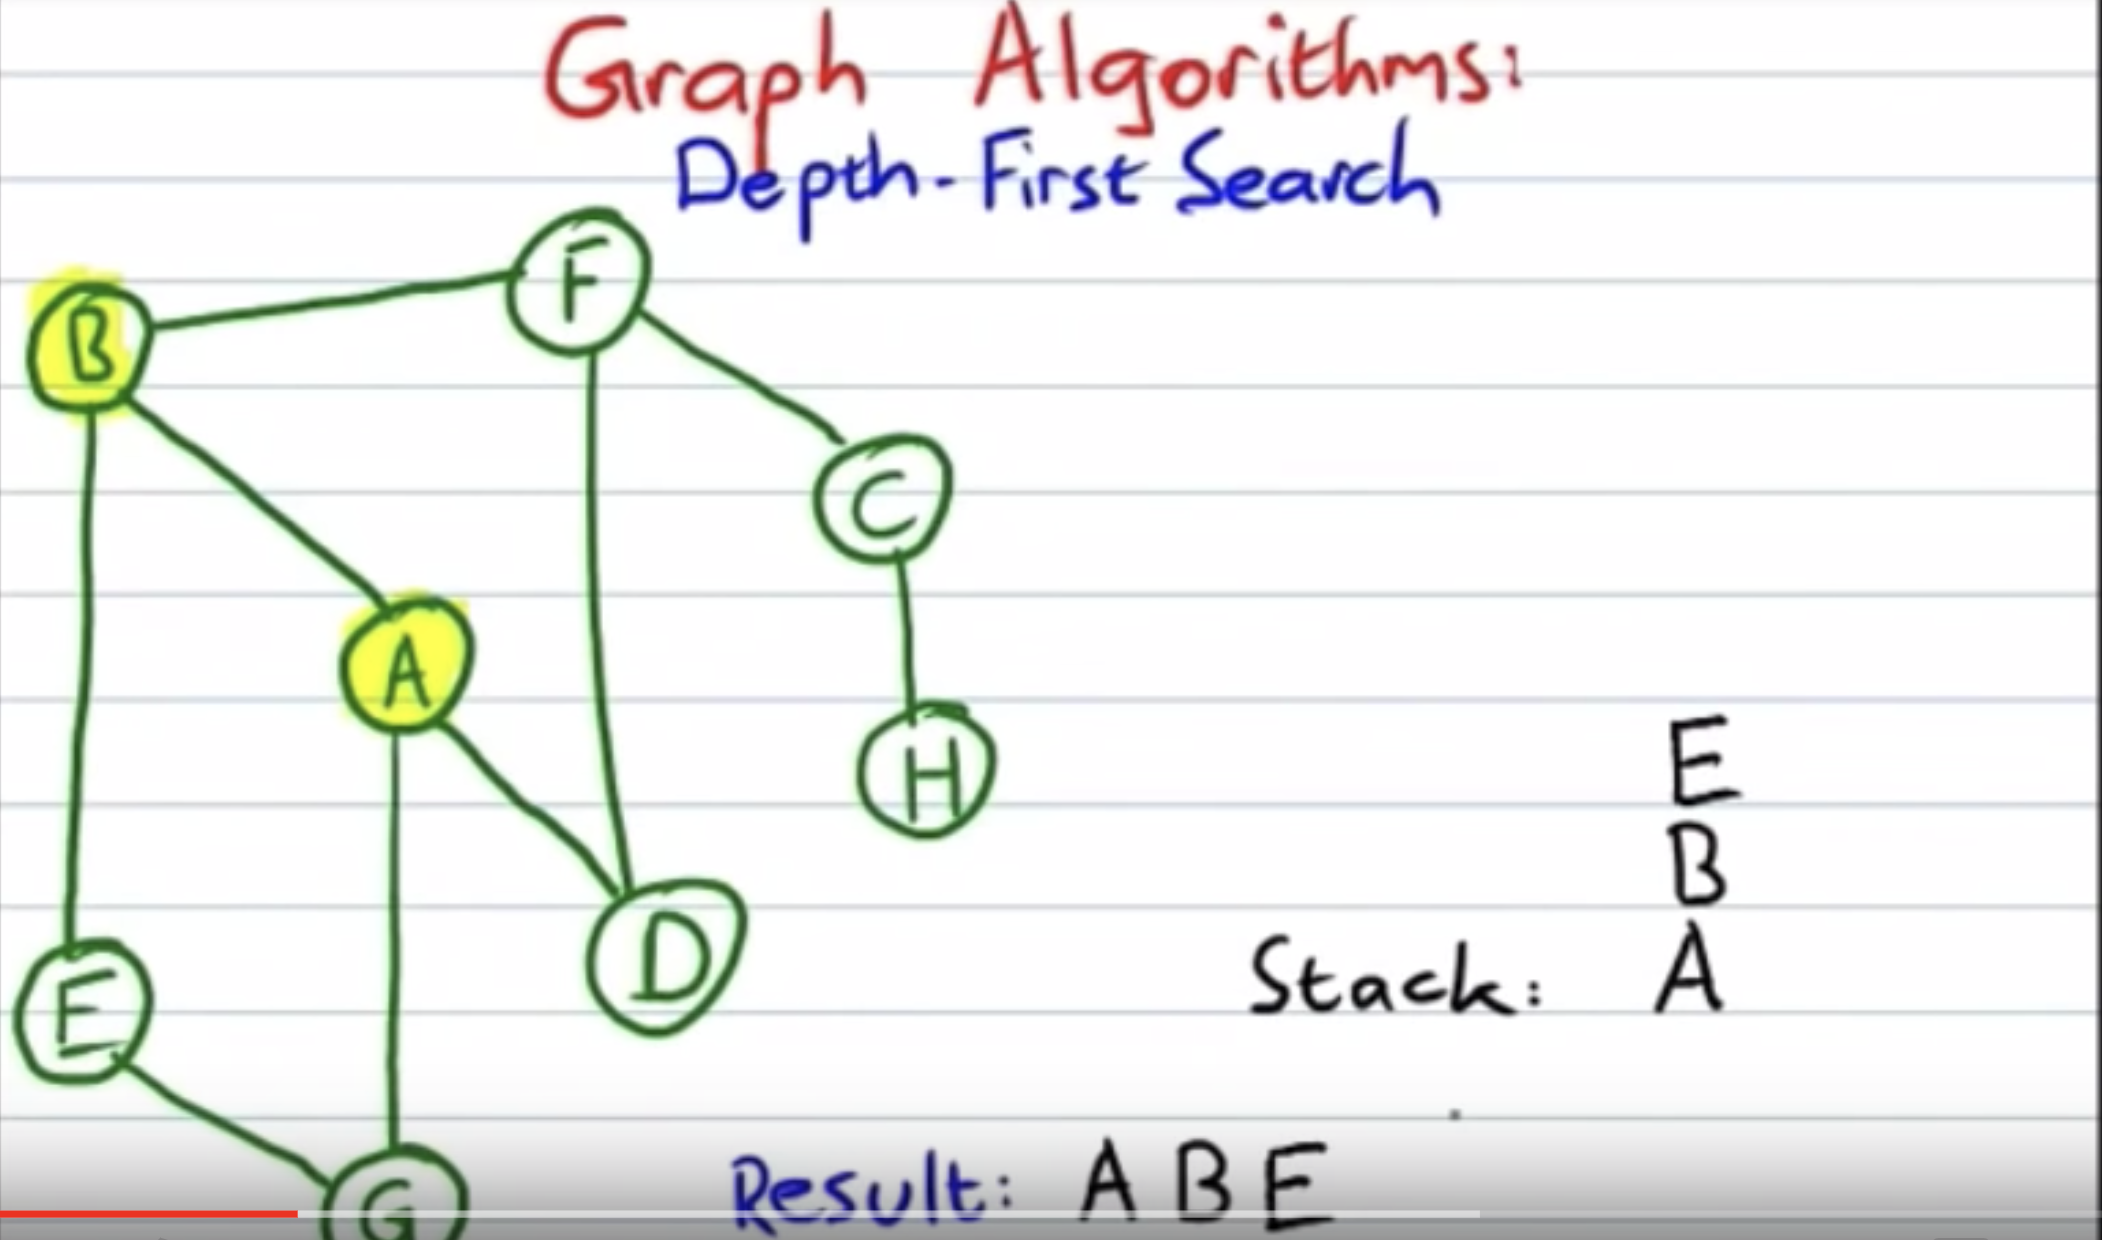 Graph Algorithms:
Depth-First Search
F
B
C
A
H
E
B
Stack: A
D
E
G
Result: A B E